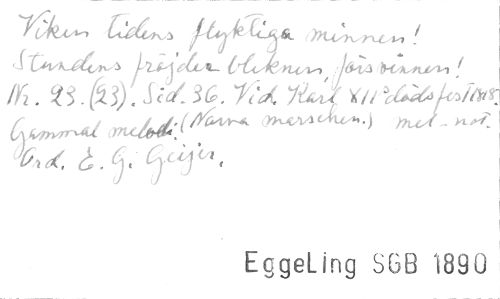 Viken tidens flyktiga minnen!
Stundens fröjder blekner, försvinnen!
Nr. 23. (23). Sid. 36. Vid Karl XII:s dödsfest 1818.
Gammal melodi. (Narva marschen.) mel-not.
Ord. E. G. Geijer.
EggeLing SGB 1890